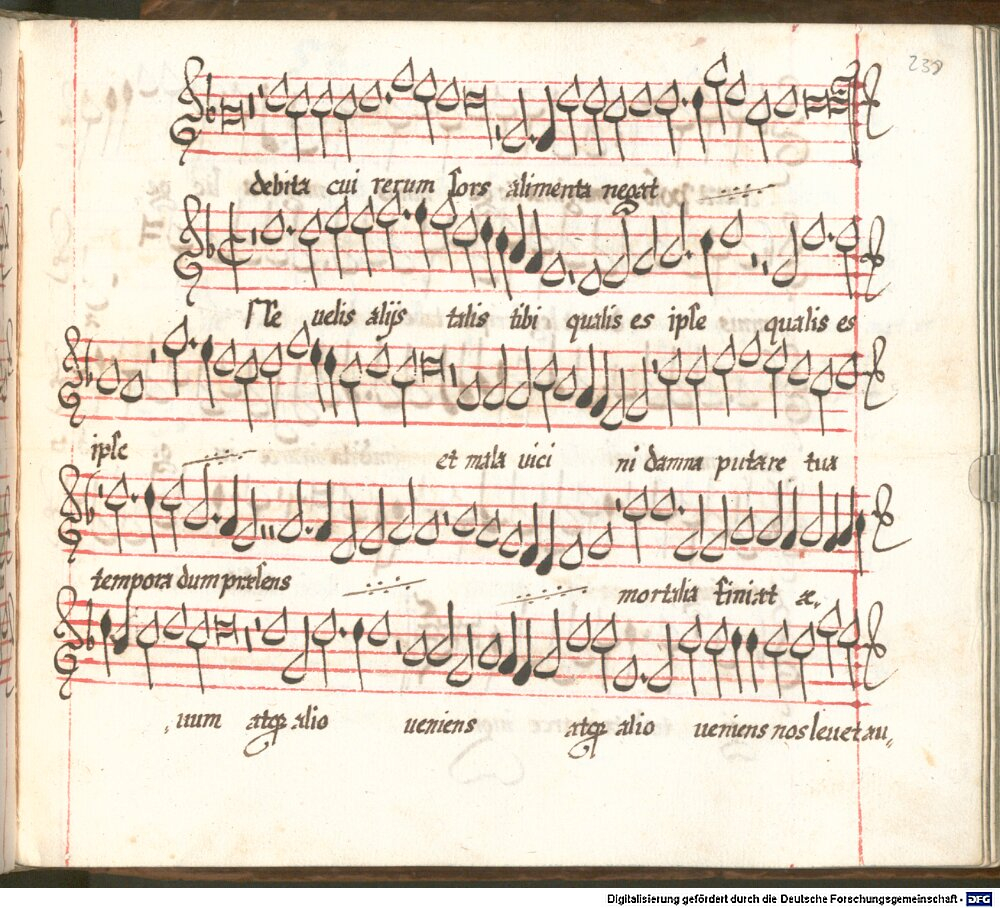 239
debita cui rerum sors alimenta negat
Esse uelis alijs talis tibi qualis es ipse qualis es
ipse et mala uici ni damna putare tua
tempora dum præsens mortalia finiat æ,
,uum atqꝫ alio ueniens atqꝫ alio ueniens nos leuet au,,
Digitalisierung gefördert durch die Deutsche Forschungsgemeinschaft - DFG